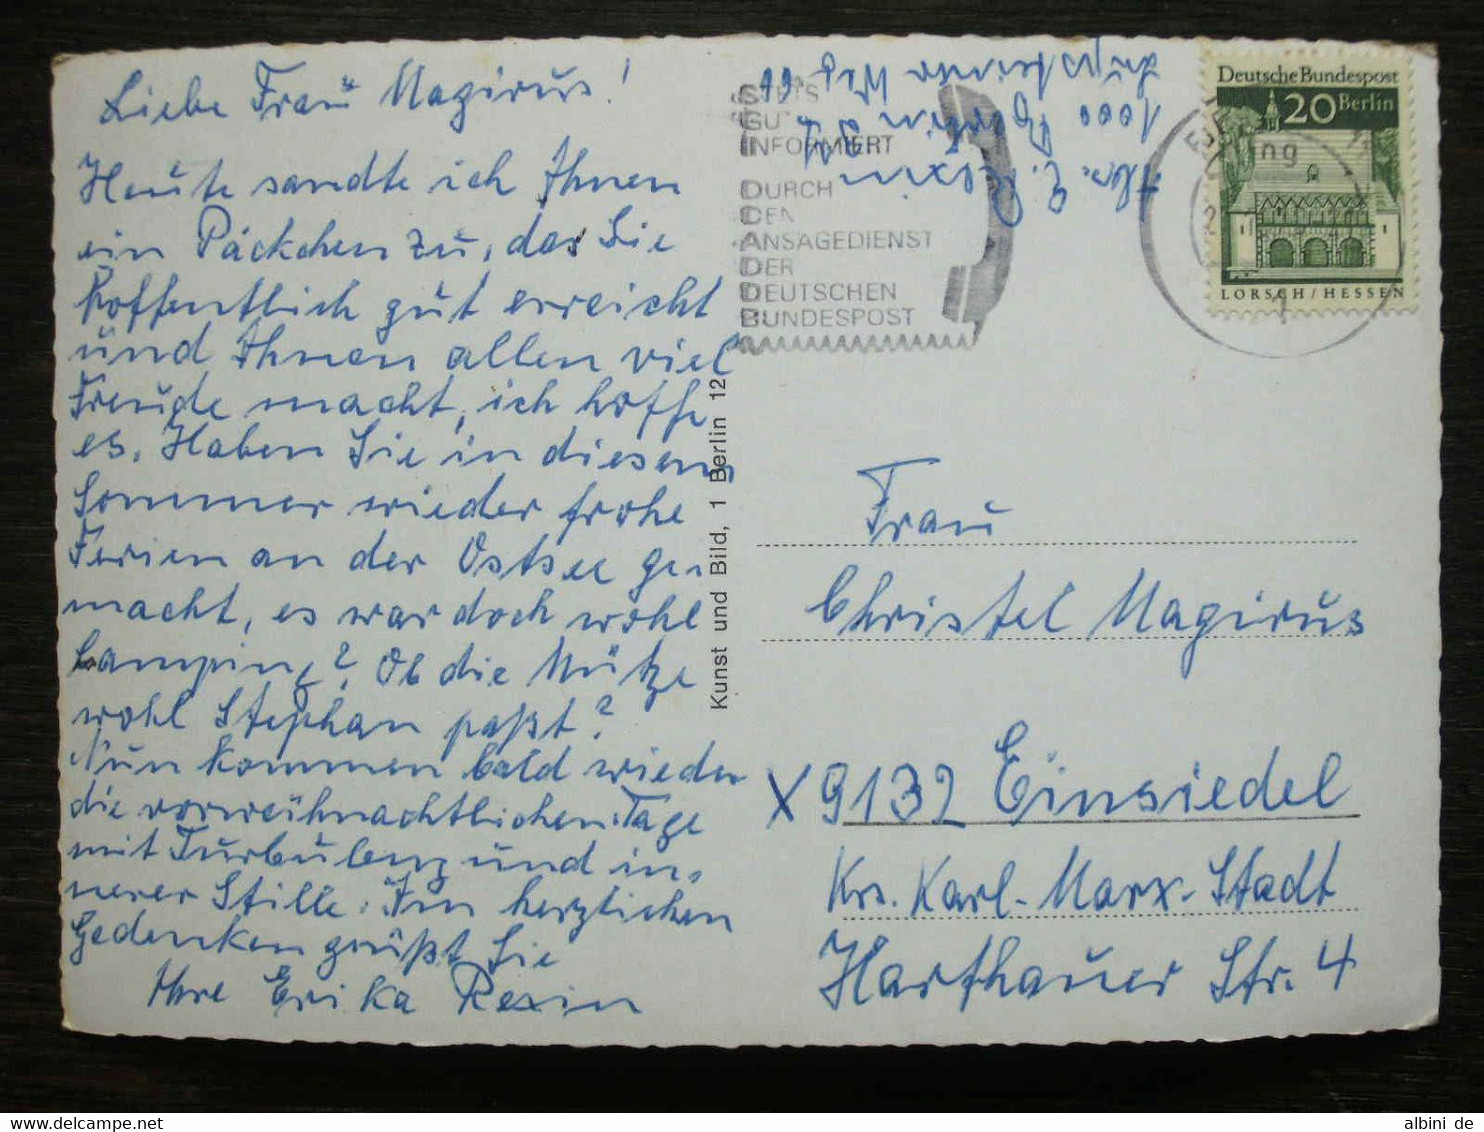 Liebe Frau Magirus!
Heute sandte ich Ihnen
ein Päckchen zu, das Sie
hoffentlich gut erreicht
und Ihnen allen viel
Freude macht, ich hoffe
es. Haben Sie in diesem
Sommer wieder frohe
Ferien an der Ostsee ge-
macht, es war doch wohl
Camping? Ob die Mütze
wohl Stephan paßt?
Nun kommen bald wieder
die vorweihnachtlichen Tage
mit Turbulenz und in-
nerer Stille. Im herzlichen
Gedenken grüßt Sie
Ihre Erika Rexin
Kunst und Bild, 1 Berlin 12
STETS
GUT
INFORMIERT
DURCH
DEN
ANSAGEDIENST
DER
DEUTSCHEN
BUNDESPOST
Abs. E. Rexin
1000 Berlin
Weg
Deutsche Bundespost
20 Berlin
LORSCH/HESSEN
Frau
Christel Magirus
X 9132 Einsiedel
Krs. Karl-Marx-Stadt
Harthauer Str. 4
albini de